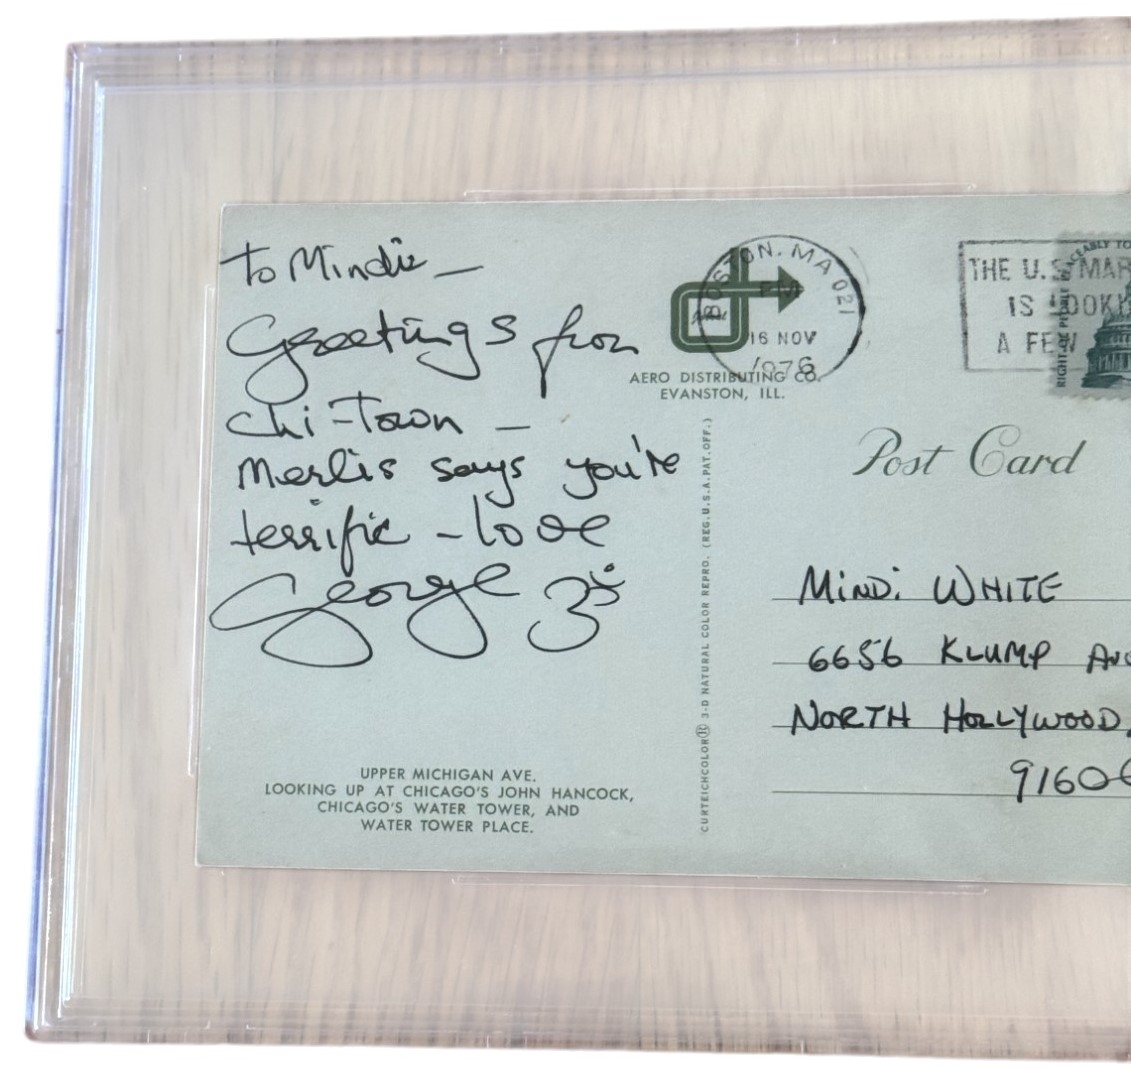 To Mindie —
Greetings from
Chi-Town —
Merlis says you're
terrific - love
George ॐ
UPPER MICHIGAN AVE.
LOOKING UP AT CHICAGO'S JOHN HANCOCK,
CHICAGO'S WATER TOWER, AND
WATER TOWER PLACE.
BOSTON, MA 021
PM
16 NOV
1976
AERO DISTRIBUTING CO.
EVANSTON, ILL.
CURTEICHCOLOR® 3-D NATURAL COLOR REPRO. (REG. U.S.A. PAT. OFF.)
THE U.S. MAR
IS LOOKI
A FEW
RIGHT OF PEOPLE PEACEABLY TO
Post Card
MINDi WHITE
6656 KLUMP AVE
NORTH HOLLYWOOD,
91606